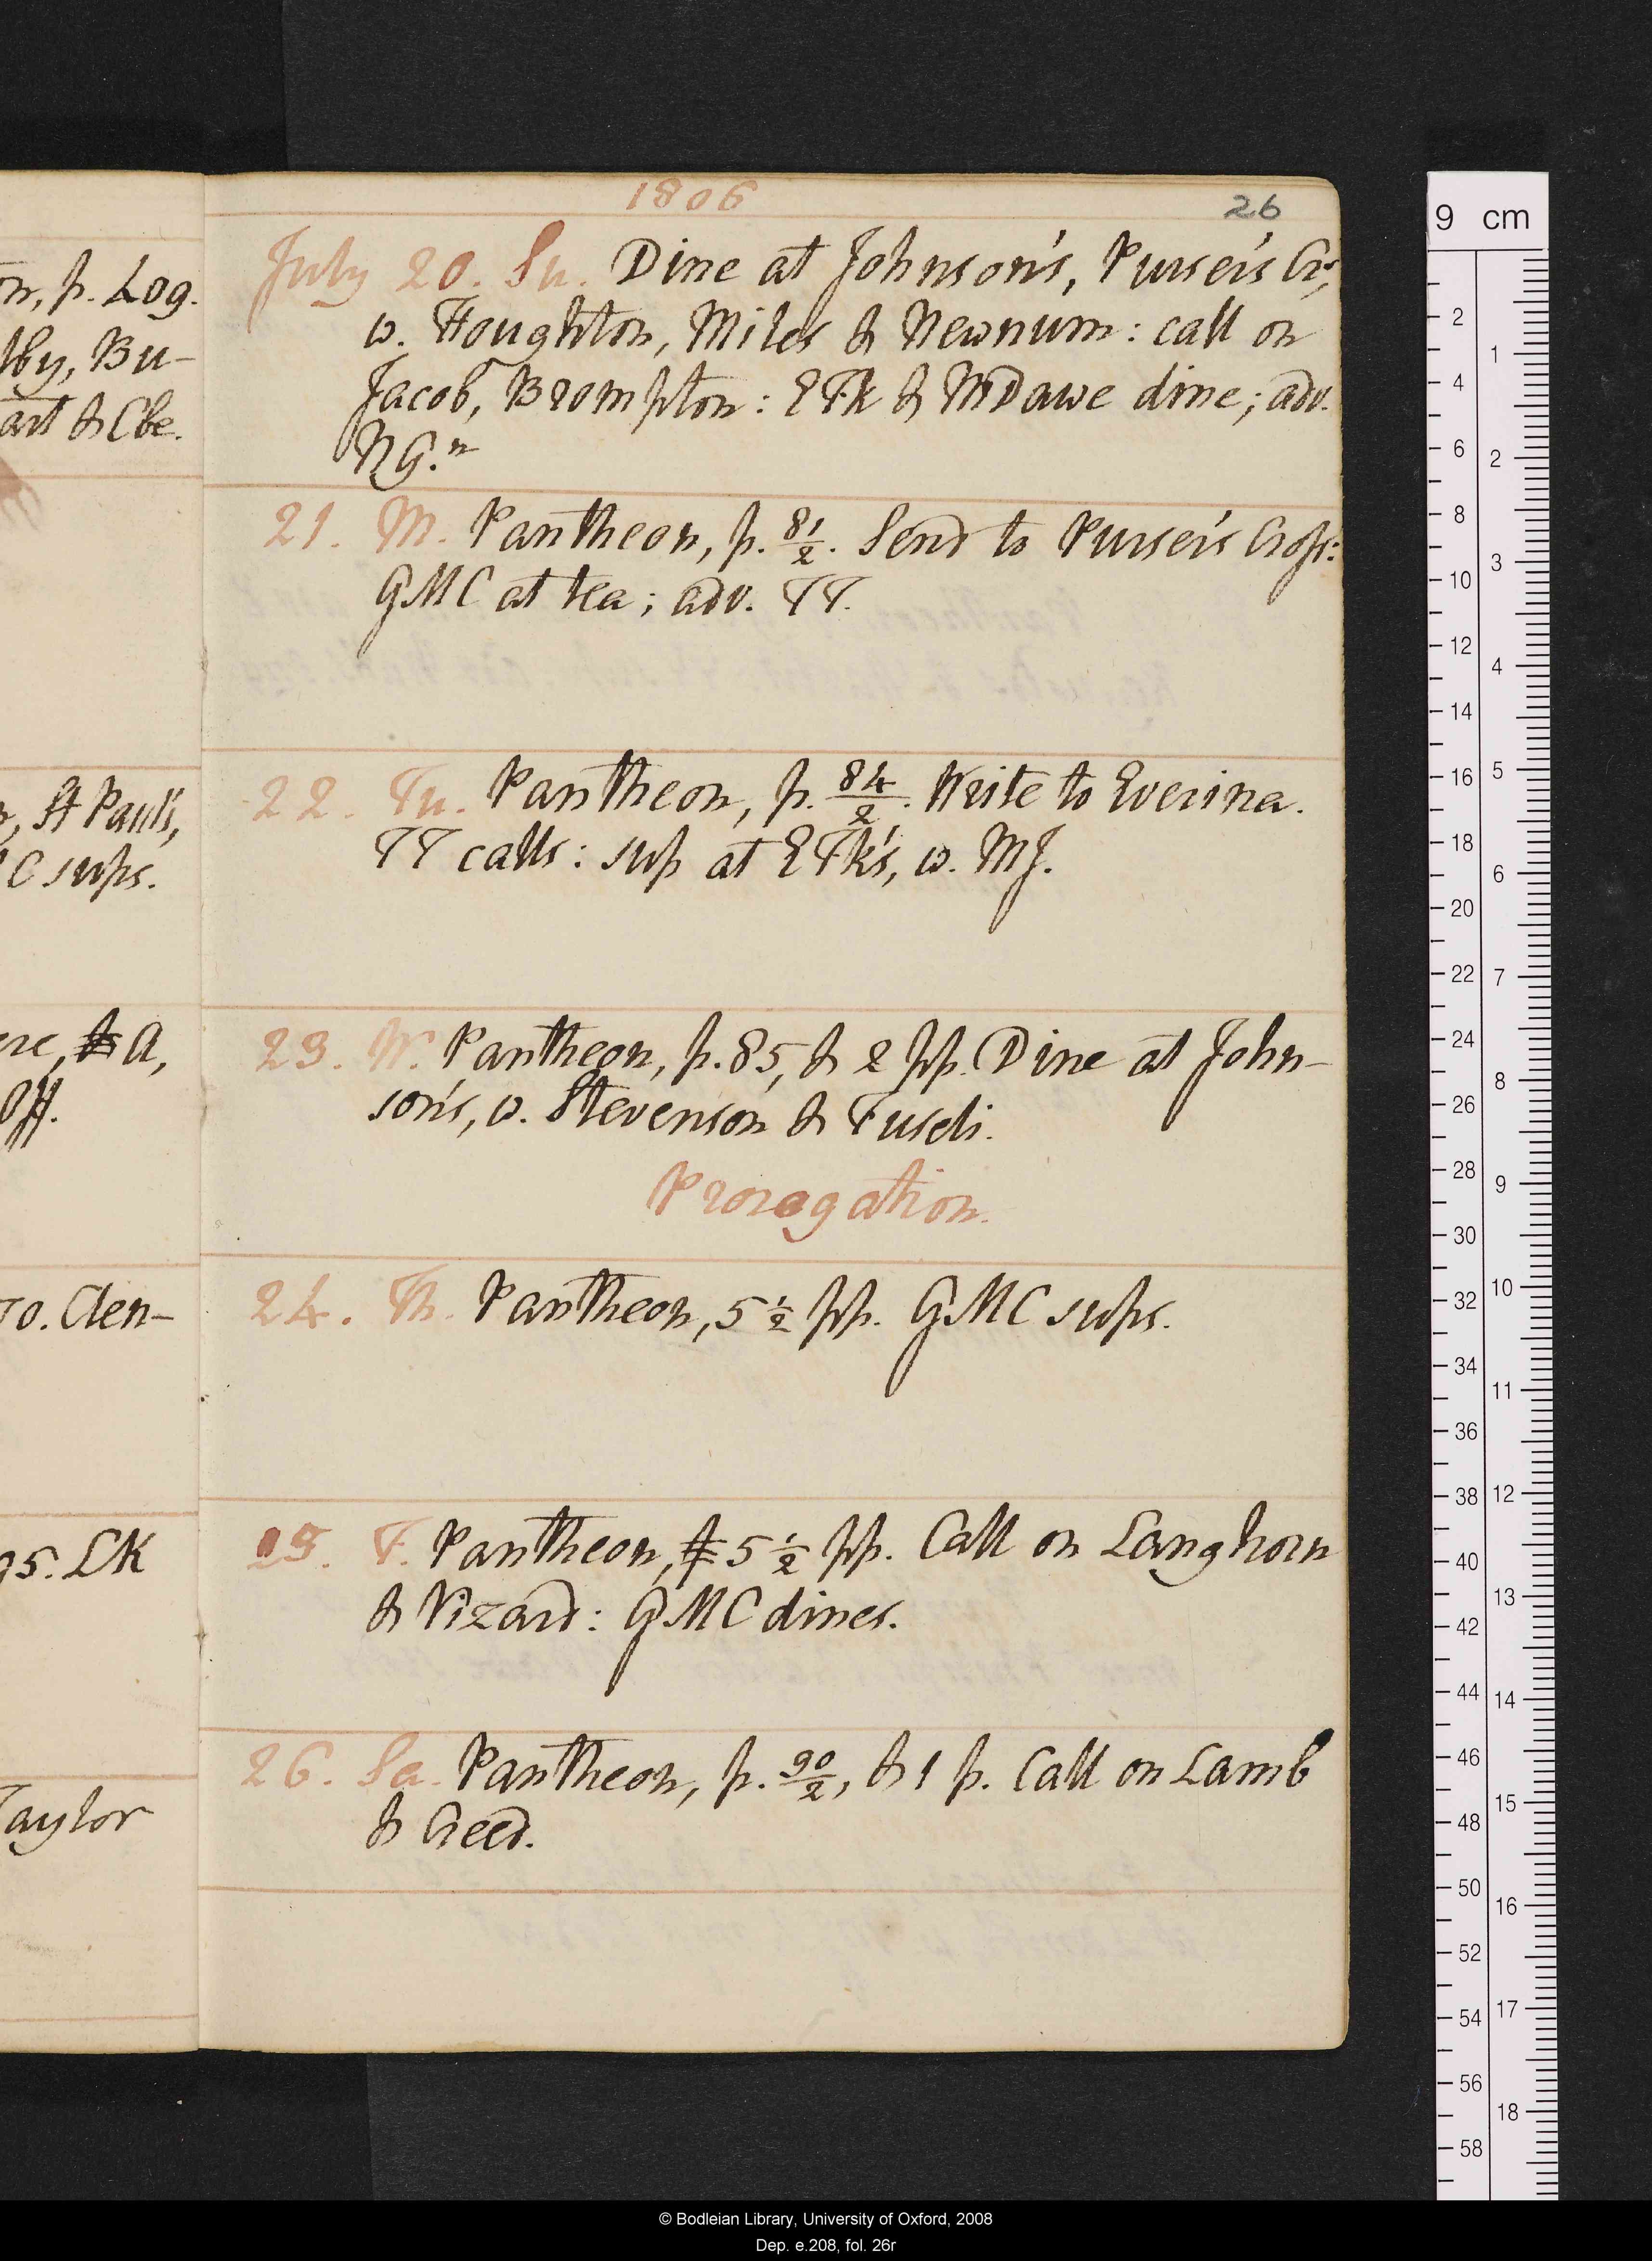 1806
26
July 20. Su. Dine at Johnson's, Purser's Cr,
w. Houghton, Miles & Newnum: call on
Jacob, Brompton: EFk & MDawe dine; adv.
NG.n
21. M. Pantheon, p. 81/2. Send to Purser's Cross:
GMC at tea; adv. TT.
22. Tu. Pantheon, p. 84/2. Write to Everina.
TT calls: sup at EFk's, w. MJ.
23. W. Pantheon, p. 85, & 2 pp. Dine at John-
son's, w. Stevenson & Fuseli.
Prorogation.
24. Th. Pantheon, 5 1/2 pp. GMC sups.
25. F. Pantheon, 5 1/2 pp. Call on Langhorn
& Vizard: GMC dines.
26. Sa. Pantheon, p. 90/2, & 1 p. Call on Lamb
& Creed.
n, p. Log.
lby, Bu-
art & Cbe.
St Paul's,
C sups.
ere, & A,
Off.
to. Clen-
95. LK
Taylor
9 cm
2
4
6
8
10
12
14
16
18
20
22
24
26
28
30
32
34
36
38
40
42
44
46
48
50
52
54
56
58
1
2
3
4
5
6
7
8
9
10
11
12
13
14
15
16
17
18
© Bodleian Library, University of Oxford, 2008
Dep. e.208, fol. 26r